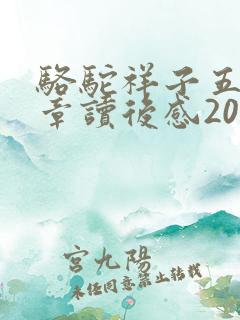 駱駝祥子五
章讀後感20
宮九陽
未經同意禁止轉載